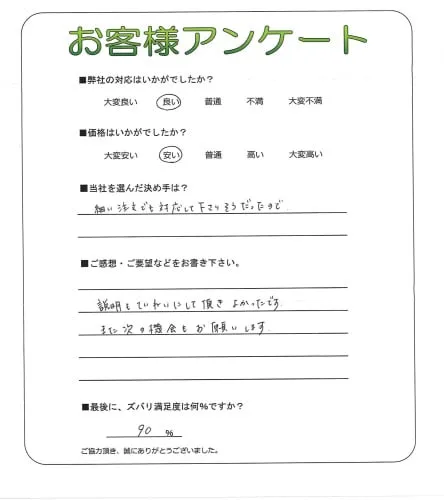 お客様アンケート
■弊社の対応はいかがでしたか？
大変良い 良い 普通 不満 大変不満
■価格はいかがでしたか？
大変安い 安い 普通 高い 大変高い
■当社を選んだ決め手は？
細い注文でも対応して下さりそうだったので
■ご感想・ご要望などをお書き下さい。
説明もていねいにして頂きよかったです。
また次の機会もお願いします。
■最後に、ズバリ満足度は何%ですか？
90 %
ご協力頂き、誠にありがとうございました。